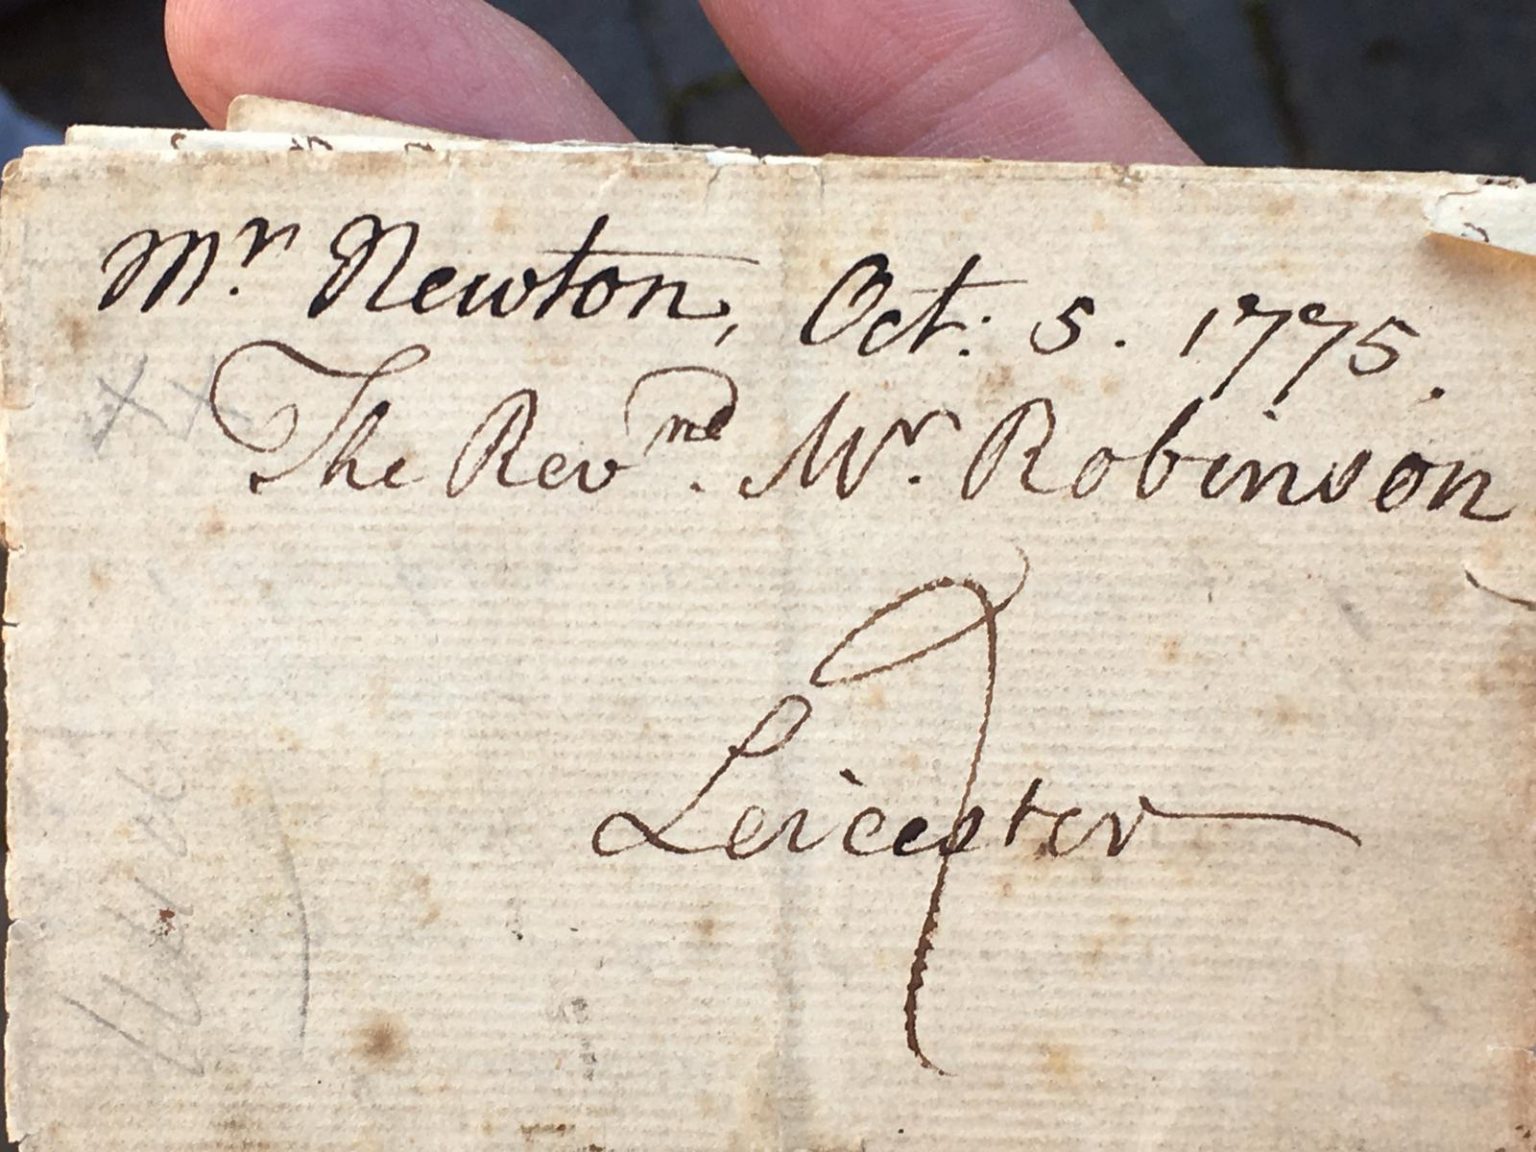 Mr. Newton, Oct: 5. 1775.
The Revnd. Mr. Robinson
Leicester